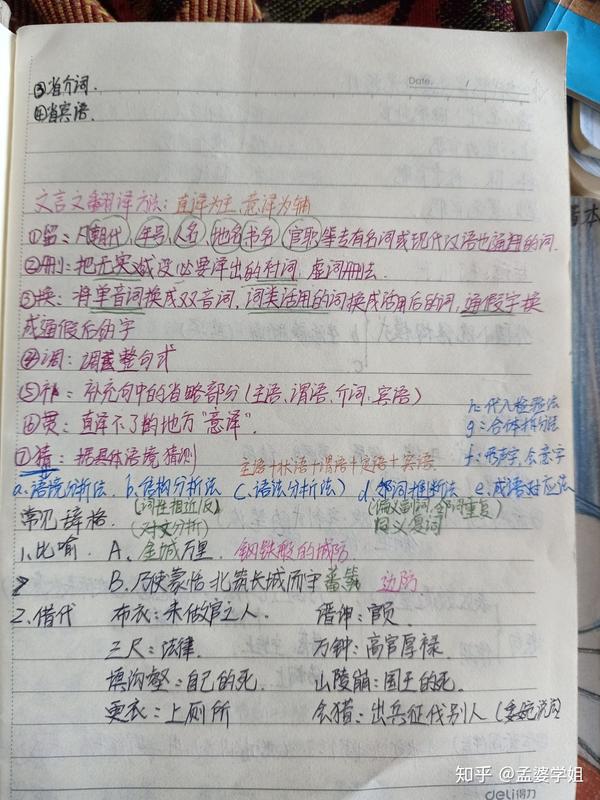 Date: /
③省介词.
④省宾语.
文言文翻译方法：直译为主,意译为辅
①留：凡朝代,年号,人名,地名书名,官职等专有名词或现代汉语也通用的词.
②删：把无实或没必要译出的衬词,虚词删去.
③换：将单音词换成双音词,词类活用的词换成活用后的词,通假字换
成通假后的字
④调：调整句式
⑤补：补充句中的省略部分(主语,谓语,介词,宾语)
⑥贯：直译不了的地方"意译".
h：代入检验法
g：合体拆分法
⑦猜：据具体语境猜测
主语+状语+谓语+定语+宾语.
f：形声字,会意字
a.语境分析法, b.结构分析法 c.语法分析法) d.邻词推断法 e.成语对应法
(词性相近反)
(偏义副词,邻词重复)
常见辞格
(对文分析)
同义复词
1.比喻. A. 金城万里. 钢铁般的城防
B. 乃使蒙恬北筑长城而守番篱 边防
2.借代 布衣：未做官之人. 缙绅：官员.
三尺：法律. 万钟：高官厚禄.
填沟壑：自己的死. 山陵崩：国王的死.
更衣：上厕所 会猎：出兵征伐别人(委婉说法)
知乎 @孟婆学姐
deli得力